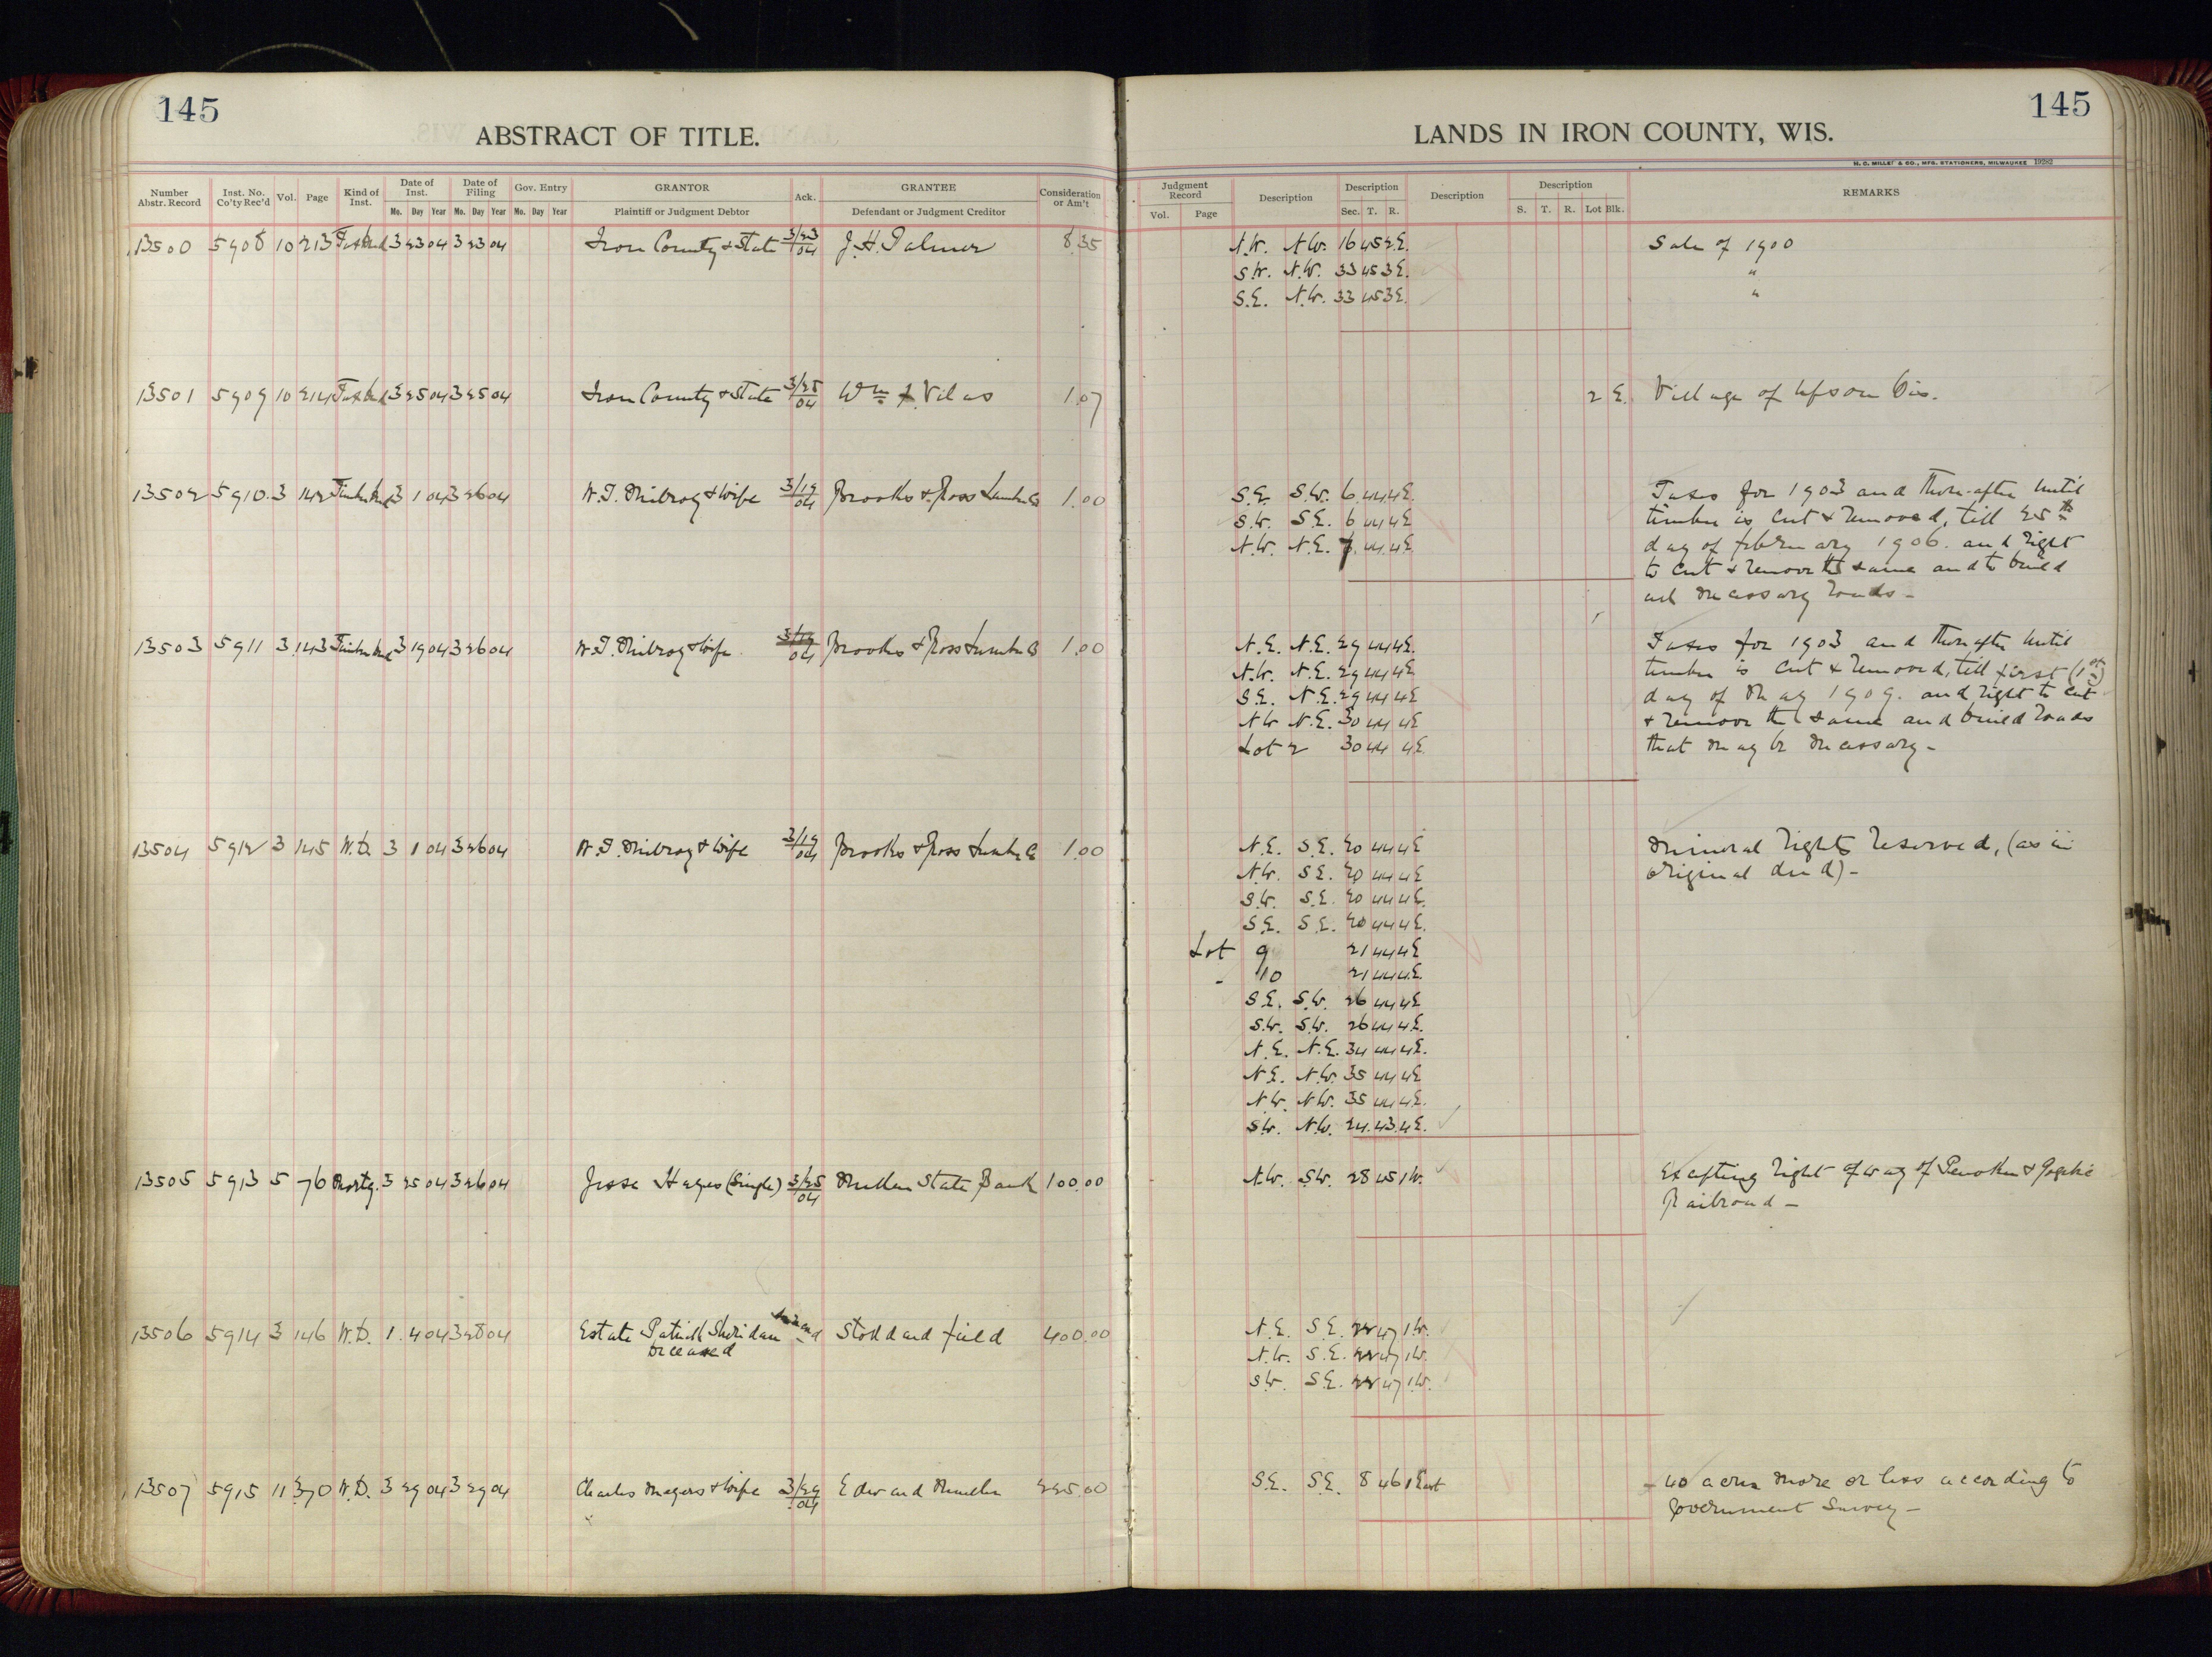 145
ABSTRACT OF TITLE.
Number Abstr. Record | Inst. No. Co'ty Rec'd | Vol. | Page | Kind of Inst. | Date of Inst. | Date of Filing | Gov. Entry | GRANTOR | Ack. | GRANTEE | Consideration or Am't
Mo. Day Year | Mo. Day Year | Mo. Day Year | Plaintiff or Judgment Debtor | Defendant or Judgment Creditor
13500 5908 10 213 Tax Deed 3 23 04 3 23 04 Iron County & State 3/23 04 J. H. Palmer 8.35
13501 5909 10 214 Tax Deed 3 25 04 3 25 04 Iron County & State 3/25 04 Wm F. Vilas 1.07
13502 5910 3 142 Timber Deed 3 1 04 3 26 04 & Wife 3/19 04 Brooks & Ross Lumber Co 1.00
13503 5911 3 143 Timber Deed 3 19 04 3 26 04 & Wife 3/19 04 Brooks & Ross Lumber Co 1.00
13504 5912 3 145 W.D. 3 1 04 3 26 04 & Wife 3/19 04 Brooks & Ross Lumber Co 1.00
13505 5913 5 76 Mortg. 3 25 04 3 26 04 Jesse Hayes (Single) 3/25 04 Mellen State Bank 100.00
13506 5914 3 146 W.D. 1 4 04 3 28 04 Estate Patrick Sheridan Stoddard Field 400.00
Deceased
13507 5915 11 370 W.D. 3 29 04 3 29 04 Charles Meyers & Wife 3/29 04 Edward Mueller 225.00
145
LANDS IN IRON COUNTY, WIS.
H. C. MILLER & CO., MFG. STATIONERS, MILWAUKEE 19282
Judgment Record | Description | Description | Description | Description | REMARKS
Vol. Page | Sec. T. R. | S. T. R. Lot Blk.
N.W. N.W. 16 45 2E. Sale of 1900
S.W. N.W. 33 45 3E. "
S.E. N.W. 33 45 3E. "
2 E. Village of Upson Wis.
S.E. S.W. 6 44 4E. Taxes for 1903 and thereafter until
S.W. S.E. 6 44 4E timber is cut & removed, till 25th
N.W. N.E. 7 44 4E. day of february 1906. and right
to cut & remove the same and to build
all necessary roads -
N.E. N.E. 29 44 4E. Taxes for 1903 and thereafter until
N.W. N.E. 29 44 4E timber is cut & removed, till first (1st)
S.E. N.E. 29 44 4E day of May 1909. and right to cut
N.W. N.E. 30 44 4E & remove the same and build roads
Lot 2 30 44 4E. that may be necessary -
N.E. S.E. 20 44 4E Mineral rights reserved, (as in
N.W. S.E. 20 44 4E original deed) -
S.W. S.E. 20 44 4E.
S.E. S.E. 20 44 4E.
Lot 9 21 44 4E
- 10 21 44 4E.
S.E. S.W. 26 44 4E
S.W. S.W. 26 44 4E.
N.E. N.E. 34 44 4E.
N.E. N.W. 35 44 4E
N.W. N.W. 35 44 4E.
S.W. N.W. 24 43 4E.
N.W. S.W. 28 45 1W. Excepting right of way of Penokee & Gogebic
Railroad -
N.E. S.E. 22 47 1W.
N.W. S.E. 22 47 1W.
S.W. S.E. 22 47 1W.
S.E. S.E. 8 46 1 East - 40 acres more or less according to
Government Survey -